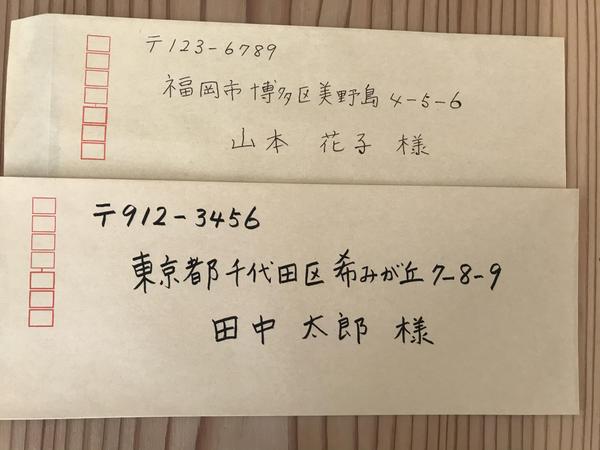 〒123-6789
福岡市博多区美野島4-5-6
山本 花子 様
〒912-3456
東京都千代田区希みが丘7-8-9
田中 太郎 様